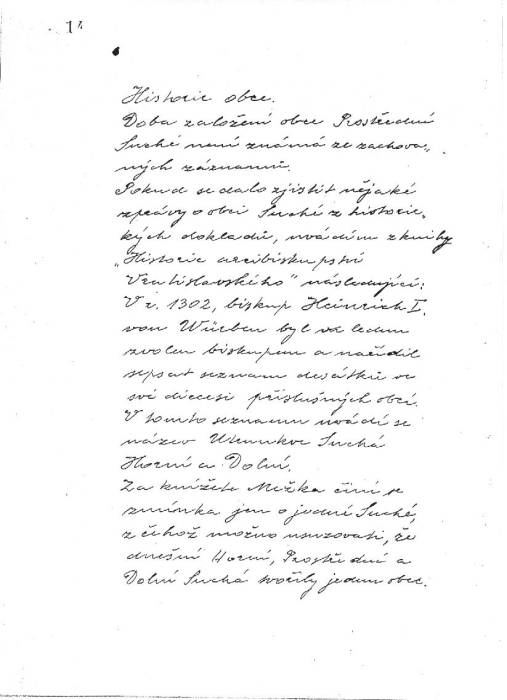 14
Historie obce.
Doba založení obce Prostřední
Suché není známá ze zachova„
ných záznamů.
Pokud se dalo zjistit nějaké
zprávy o obci Suché z historic„
kých dokladů, uvádím z knihy
„Historie arcibiskupství
Vratislavského" následující:
V r. 1302, biskup Heinrich I.
von Würben byl ve lednu
zvolen biskupem a nařídil
sepsat seznam desátků ve
své diecesi příslušných obcí.
V tomto seznamu uvádí se
název Suchá
Horní a Dolní.
Za knížete Mežka činí se
zmínka jen o jedné Suché,
z čehož možno usuzovati, že
dnešní Horní, Prostřední a
Dolní Suchá tvořily jednu obec.